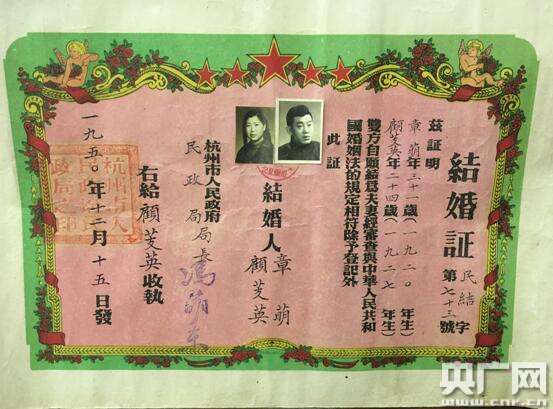 結婚証
民結字
第七十三號
茲証明
章萌年三十一歲(一九二〇年生)
顧芰英年二十四歲(一九二七年生)
雙方自願結爲夫妻經審查與中華人民共和
國婚姻法的規定相符除予登記外
此証
結婚人 章萌
顧芰英
杭州市人民政府
民政局局長
右給顧芰英收執
一九五〇年十二月十五日發
杭州市人
政局之印
央广网
www.cnr.cn